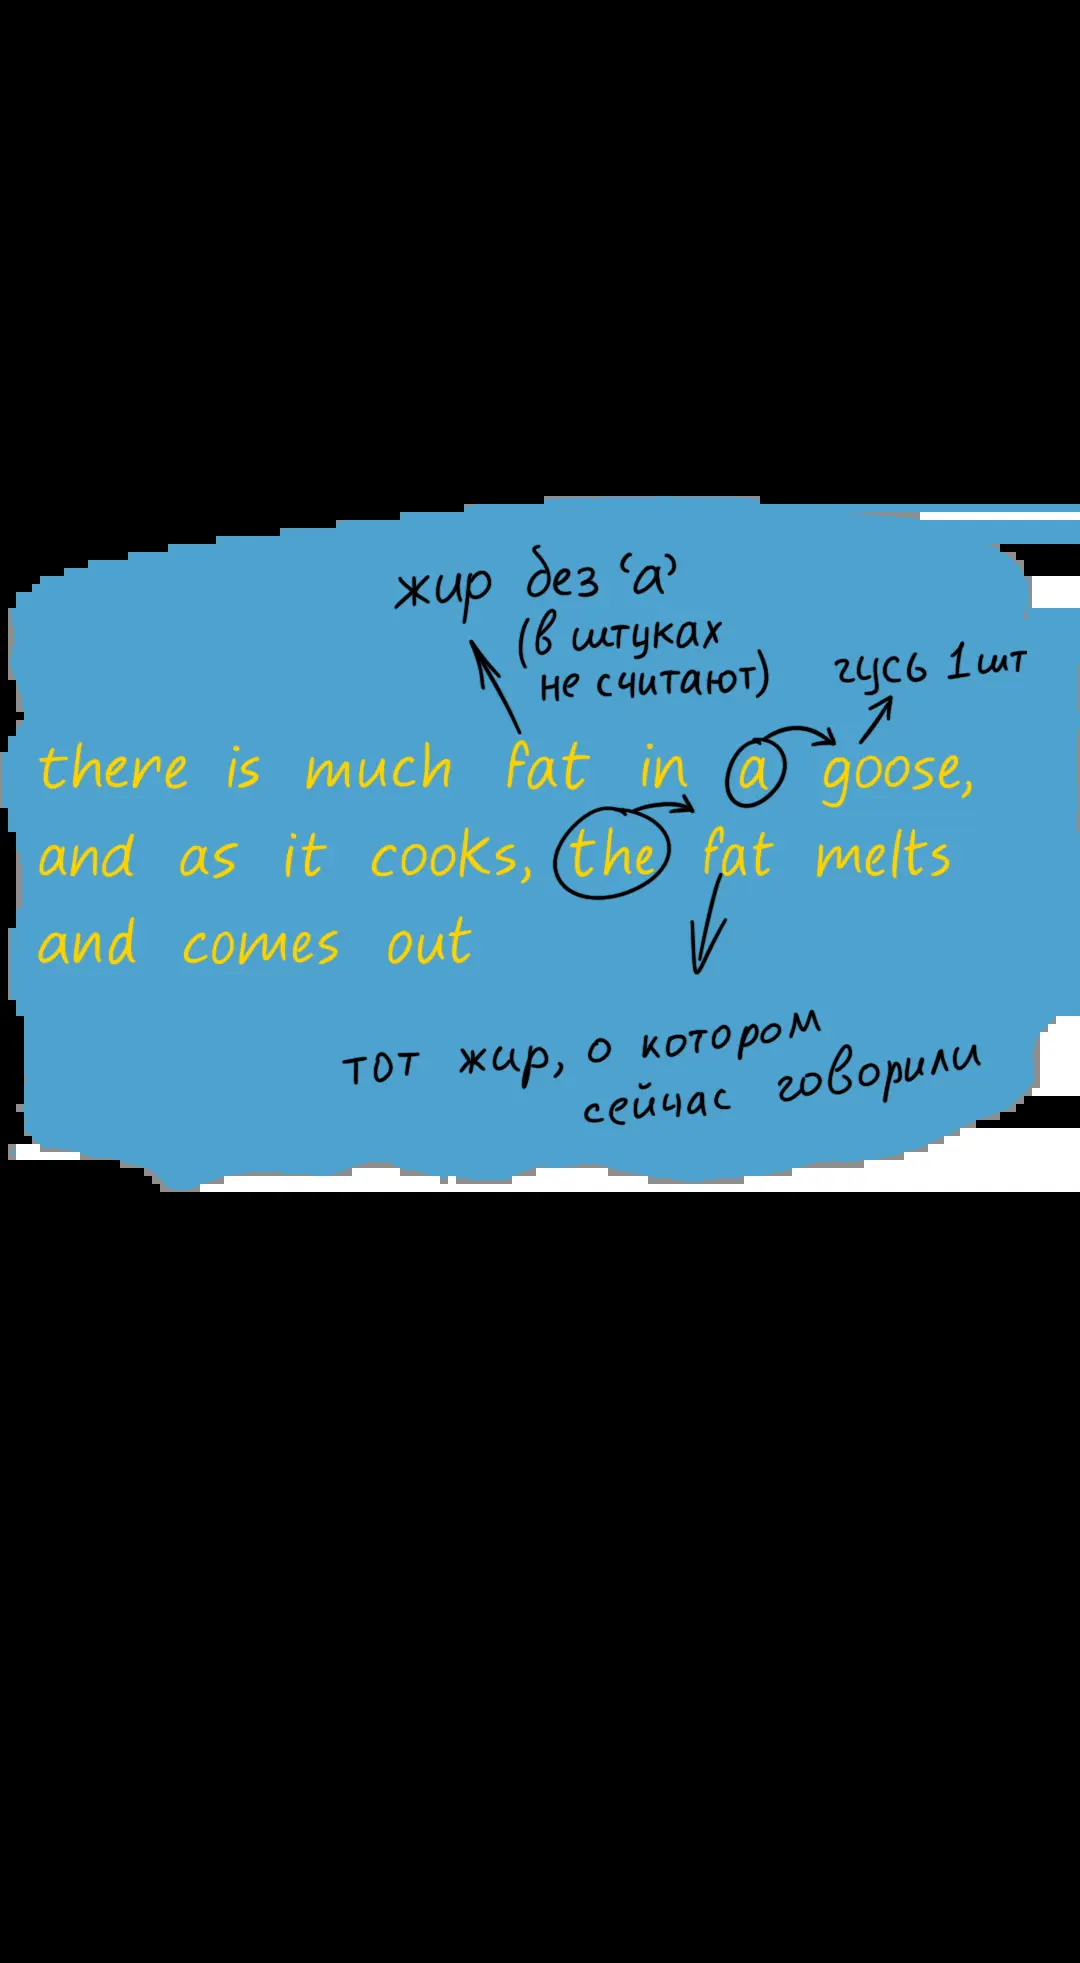 жир без 'а'
(в штуках
не считают)
гусь 1 шт
there is much fat in a goose,
and as it cooks, the fat melts
and comes out
тот жир, о котором
сейчас говорили